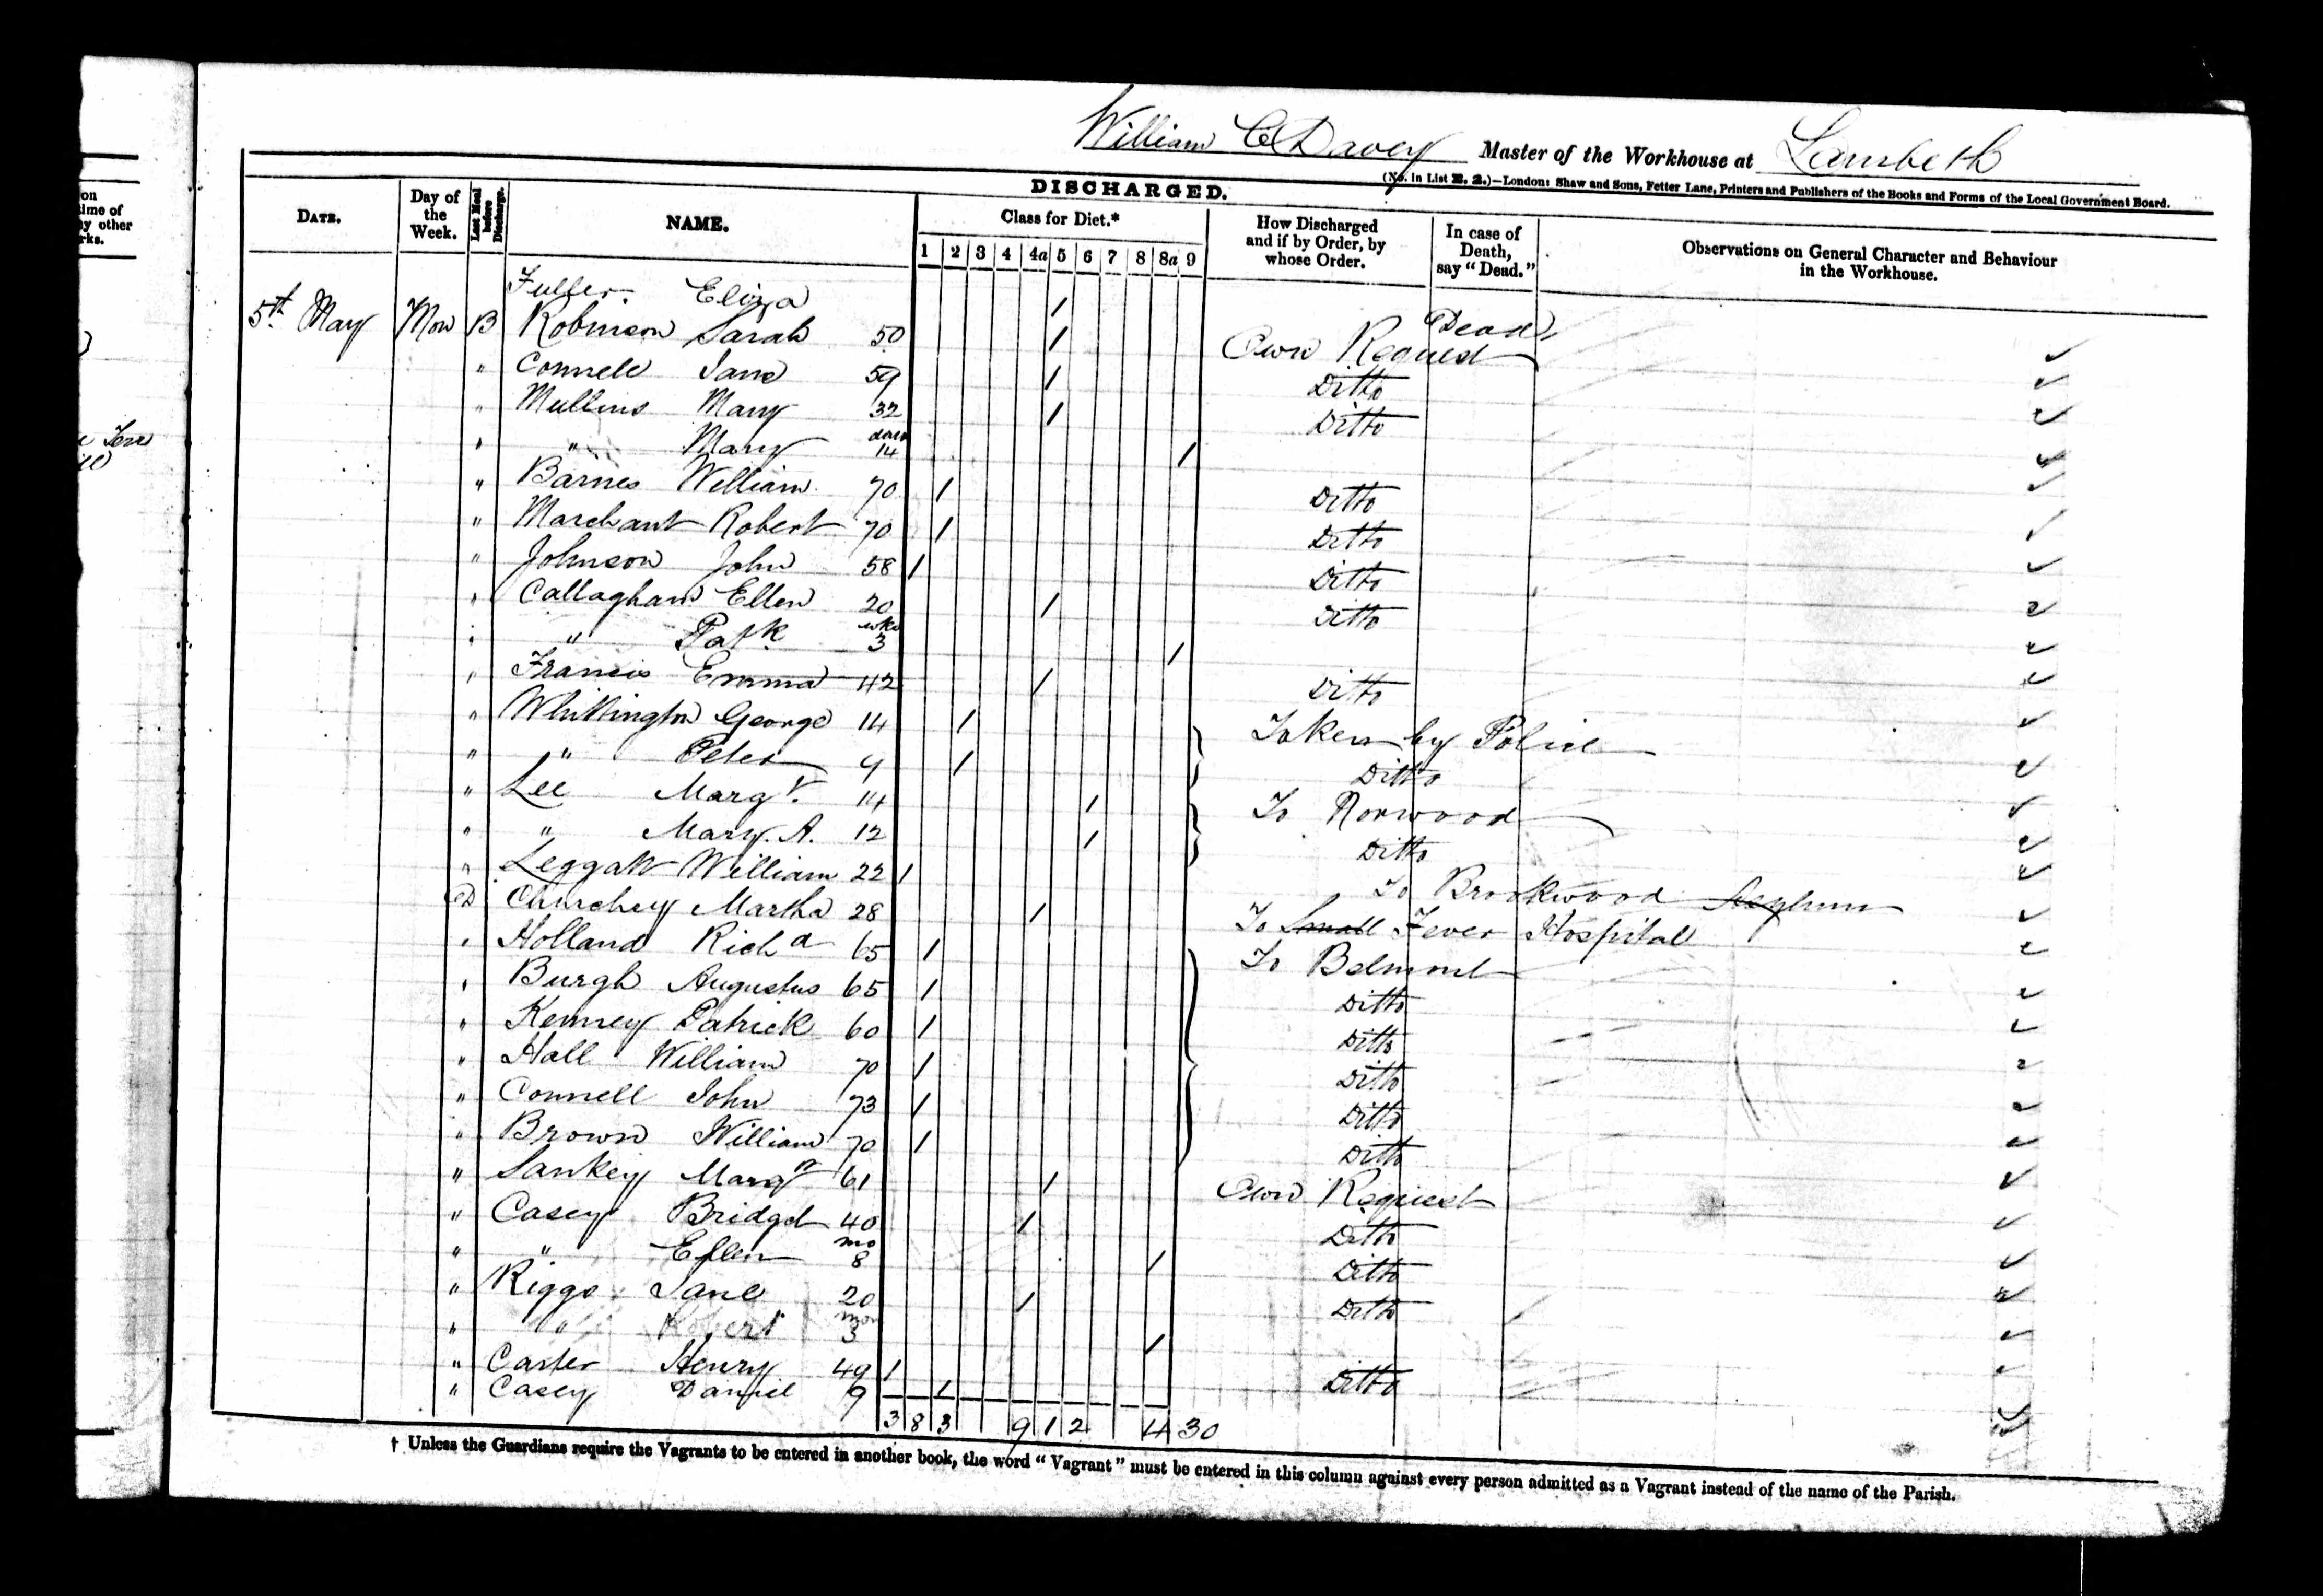 William C Davey Master of the Workhouse at Lambeth
(No. in List E. 2.)—London: Shaw and Sons, Fetter Lane, Printers and Publishers of the Books and Forms of the Local Government Board.
DISCHARGED.
on
ime of
y other
rks.
DATE. Day of the Week. Last Meal before Discharge. NAME. Class for Diet.* How Discharged and if by Order, by whose Order. In case of Death, say "Dead." Observations on General Character and Behaviour in the Workhouse.
1 2 3 4 4a 5 6 7 8 8a 9
Fuller Eliza 1 Dead
5th May Mon B Robinson Sarah 50 1 Own Request ✓
" Connell Jane 59 1 Ditto ✓
" Mullins Mary 32 1 Ditto ✓
" " Mary days 14 1 ✓
" Barnes William 70 1 Ditto ✓
" Marchant Robert 70 1 Ditto ✓
" Johnson John 58 1 Ditto ✓
" Callaghan Ellen 20 1 Ditto ✓
" " Patk wks 3 1 ✓
" Francis Emma 42 1 Ditto ✓
" Whittington George 14 1 Taken by Police ✓
" " Peter 9 1 Ditto ✓
" Lee Margt. 14 1 To Norwood ✓
" " Mary A. 12 1 Ditto ✓
" Leggatt William 22 1 To Brookwood Asylum ✓
D Churchey Martha 28 1 To Small Fever Hospital ✓
" Holland Richd 65 1 To Belmont ✓
" Burgh Augustus 65 1 Ditto ✓
" Kenney Patrick 60 1 Ditto ✓
" Hall William 70 1 Ditto ✓
" Connell John 73 1 Ditto ✓
" Brown William 70 1 Ditto ✓
" Sankey Margt 61 1 Own Request ✓
" Casey Bridget 40 1 Ditto ✓
" " Ellen mo 8 1 Ditto ✓
" Riggs Jane 20 1 Ditto ✓
" " Robert mon 3 1 ✓
" Carter Henry 49 1 Ditto ✓
" Casey Daniel 9 1 ✓
3 8 3 9 1 2 4 30
† Unless the Guardians require the Vagrants to be entered in another book, the word "Vagrant" must be entered in this column against every person admitted as a Vagrant instead of the name of the Parish.